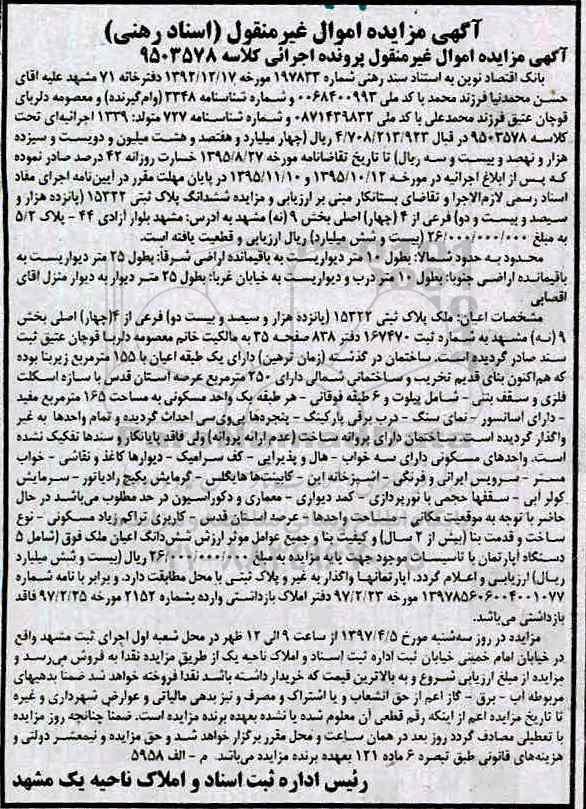 آگهی مزایده اموال غیرمنقول (اسناد رهنی)
آگهی مزایده اموال غیرمنقول پرونده اجرائی کلاسه ۹۵۰۳۵۷۸
بانک اقتصاد نوین به استناد سند رهنی شماره ۱۹۷۸۳۳ مورخه ۱۳۹۲/۱۲/۱۷ دفترخانه ۷۱ مشهد علیه آقای
حسن محمدنیا فرزند محمد با کد ملی ۰۰۶۸۴۰۰۹۹۳ و شماره شناسنامه ۳۳۴۸ (وام‌گیرنده) و معصومه دلربای
قوچان عتیق فرزند محمدعلی با کد ملی ۰۸۷۱۴۳۹۸۳۲ و شماره شناسنامه ۷۲۷ متولد: ۱۳۳۹ اجرائیه‌ای تحت
کلاسه ۹۵۰۳۵۷۸ در قبال ۴/۷۰۸/۲۱۳/۹۲۳ ریال (چهار میلیارد و هفتصد و هشت میلیون و دویست و سیزده
هزار و نهصد و بیست و سه ریال) تا تاریخ تقاضانامه مورخه ۱۳۹۵/۸/۲۷ خسارت روزانه ۴۲ درصد صادر نموده
که پس از ابلاغ اجرائیه در مورخه ۱۳۹۵/۱۰/۱۲ و ۱۳۹۵/۱۱/۱۰ در پایان مهلت مقرر در آیین‌نامه اجرای مفاد
اسناد رسمی لازم‌الاجرا و تقاضای بستانکار مبنی بر ارزیابی و مزایده ششدانگ پلاک ثبتی ۱۵۳۲۲ (پانزده هزار و
سیصد و بیست و دو) فرعی از ۴ (چهار) اصلی بخش ۹ (نه) مشهد به آدرس: مشهد بلوار آزادی ۴۴ - پلاک ۵/۲
به مبلغ ۲۶/۰۰۰/۰۰۰/۰۰۰ (بیست و شش میلیارد) ریال ارزیابی و قطعیت یافته است.
محدود به حدود شمالا: بطول ۱۰ متر دیواریست به باقیمانده اراضی شرقاً: بطول ۲۵ متر دیواریست به
باقیمانده اراضی جنوبا: بطول ۱۰ متر درب و دیواریست به خیابان غربا: بطول ۲۵ متر دیوار به دیوار منزل آقای
اقصایی
مشخصات اعیان: ملک پلاک ثبتی ۱۵۳۲۲ (پانزده هزار و سیصد و بیست دو) فرعی از ۴(چهار) اصلی بخش
۹ (نه) مشهد به شماره ثبت ۱۶۷۴۷۰ دفتر ۸۳۸ صفحه ۳۵ به مالکیت خانم معصومه دلربا قوچان عتیق ثبت
سند صادر گردیده است. ساختمان در گذشته (زمان ترهین) دارای یک طبقه اعیان با ۱۵۵ مترمربع زیربنا بوده
که هم‌اکنون بنای قدیم تخریب و ساختمانی شمالی دارای ۲۵۰ مترمربع عرصه آستان قدس با سازه اسکلت
فلزی و سقف بتنی - شامل پیلوت و ۶ طبقه فوقانی - هر طبقه یک واحد مسکونی به مساحت ۱۶۵ مترمربع مفید
- دارای آسانسور - نمای سنگ - درب برقی پارکینگ - پنجره‌ها یو‌وی‌سی احداث گردیده و تمام واحدها به غیر
واگذار گردیده است. ساختمان دارای پروانه ساخت (عدم ارائه پروانه) ولی فاقد پایانکار و سندها تفکیک نشده
است. واحدهای مسکونی دارای سه خواب - هال و پذیرایی - کف سرامیک - دیوارها کاغذ و نقاشی - خواب
مستر - سرویس ایرانی و فرنگی - آشپزخانه اپن - کابینت‌ها هایگلس - گرمایش پکیج رادیاتور - سرمایش
کولر آبی - سقفها حجمی با نورپردازی - کمد دیواری - معماری و دکوراسیون در حد مطلوب می‌باشد در حال
حاضر با توجه به موقعیت مکانی - مساحت واحدها - عرصه آستان قدس - کاربری تراکم زیاد مسکونی - نوع
ساخت و قدمت بنا (بیش از ۲ سال) و کیفیت بنا و جمیع عوامل موثر ارزش شش‌دانگ اعیان ملک فوق (شامل ۵
دستگاه آپارتمان با تاسیسات موجود جهت پایه مزایده به مبلغ ۲۶/۰۰۰/۰۰۰/۰۰۰ ریال (بیست و شش میلیارد
ریال) ارزیابی و اعلام گردد. آپارتمانها واگذار به غیر و پلاک ثبتی با محل مطابقت دارد. و برابر با نامه شماره
۱۳۹۷۸۵۶۰۶۰۰۴۰۰۱۰۷۷ مورخه ۹۷/۲/۲۳ دفتر املاک بازداشتی وارده بشماره ۲۱۵۲ مورخه ۹۷/۲/۲۵ فاقد
بازداشتی می‌باشد.
مزایده در روز سه‌شنبه مورخ ۱۳۹۷/۴/۵ از ساعت ۹ الی ۱۲ ظهر در محل شعبه اول اجرای ثبت مشهد واقع
در خیابان امام خمینی خیابان ثبت اداره ثبت اسناد و املاک ناحیه یک از طریق مزایده نقدا به فروش می‌رسد و
مزایده از مبلغ ارزیابی شروع و به بالاترین قیمت که خریدار داشته باشد نقدا فروخته خواهد شد ضمنا بدهیهای
مربوطه آب - برق - گاز اعم از حق انشعاب و یا اشتراک و مصرف و نیز بدهی مالیاتی و عوارض شهرداری و غیره
تا تاریخ مزایده اعم از اینکه رقم قطعی آن معلوم شده یا نشده بعهده برنده مزایده است. ضمناً چنانچه روز مزایده
با تعطیلی مصادف گردد روز بعد در همان ساعت و محل مقرر برگزار خواهد شد و حق مزایده و نیمعشر دولتی و
هزینه‌های قانونی طبق تبصره ۶ ماده ۱۲۱ بعهده برنده مزایده می‌باشد. م - الف ۵۹۵۸
رئیس اداره ثبت اسناد و املاک ناحیه یک مشهد